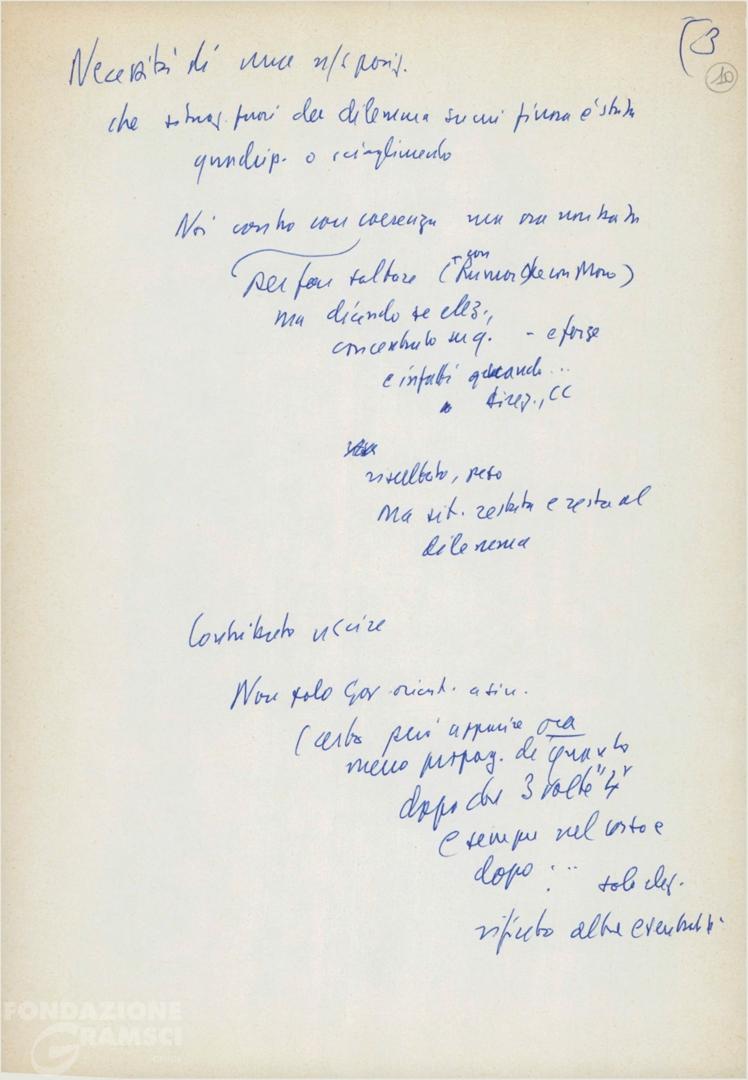 (3
10
Necessità di una
che fuori del dilemma su cui finora è stata
quadrip. o scioglimento
Noi contro con coerenza ma ora non basta
per far saltare (con Rumor che con Moro)
ma dicendo se elez.,
concentrato su q. - e forse
e infatti quando...
" direz., CC
risultato, peso
ma sit. restata e resta al
dilemma
Contributo uscire
Non solo Gov orient. a sin.
(certo può apparire ora
meno propag. di quanto
dopo che 3 volte "4"
e sempre nel corso e
dopo : .. solo elez.
rifiuto altre eventualità
FONDAZIONE
GRAMSCI